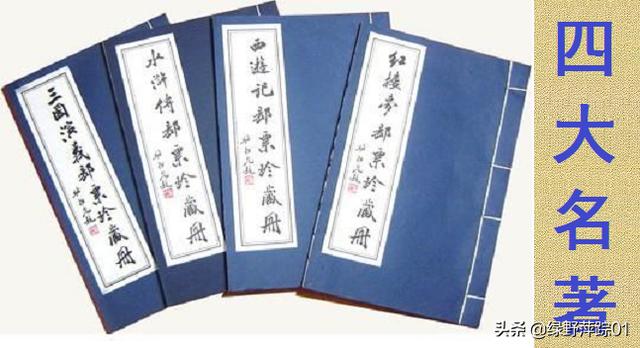 三国演义邮票珍藏册
水浒传邮票珍藏册
西游记邮票珍藏册
红楼梦邮票珍藏册
四大名著
头条 @绿野萍踪01